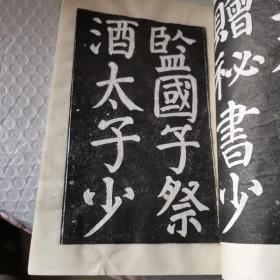 贈秘書少
監國子祭
酒太子少